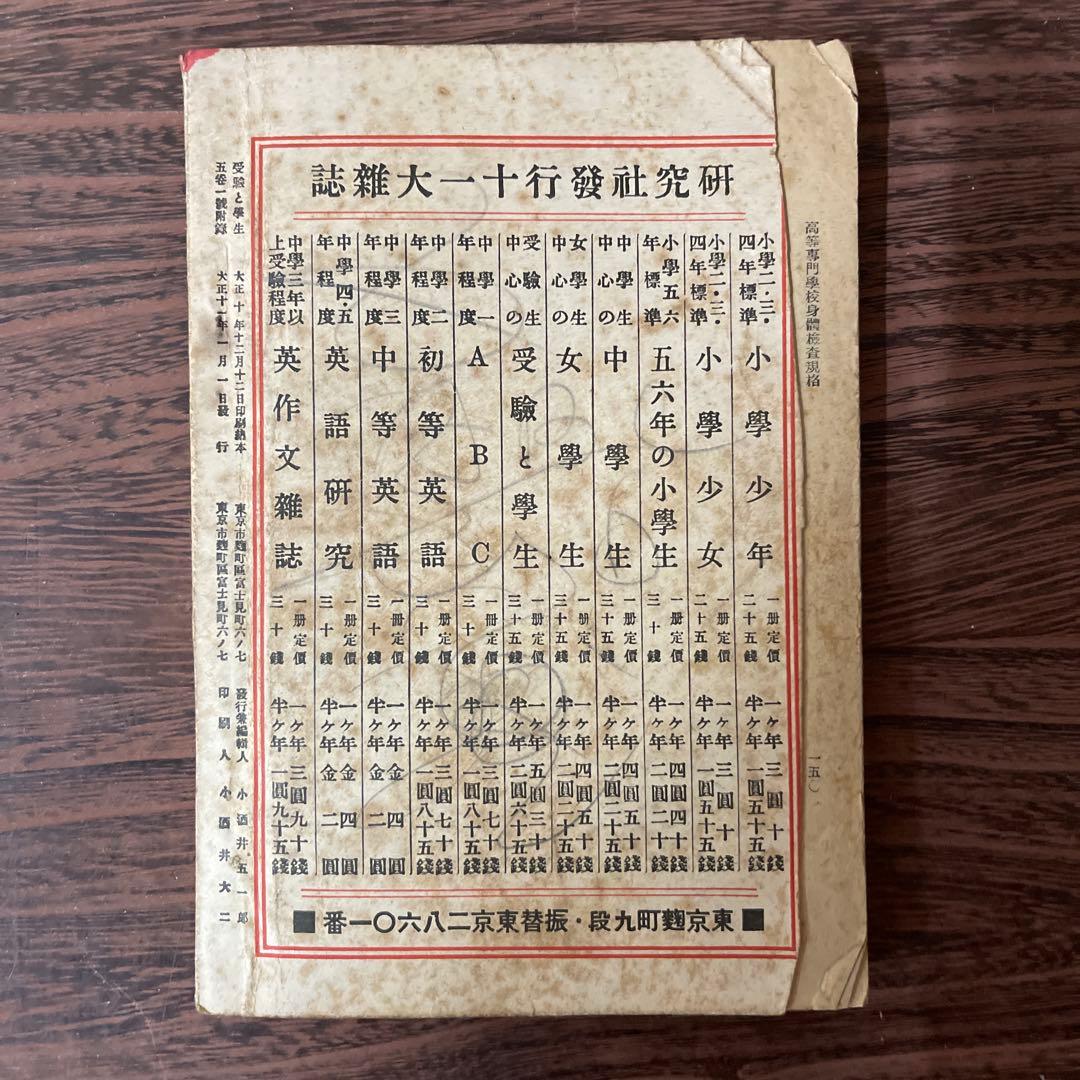 高等專門學校身體檢査規格
一五〇
研究社發行十一大雜誌
小學二・三・四年標準 小學少年 一册定價二十五錢 一ヶ年三圓十錢 半ヶ年一圓五十五錢
小學二・三・四年標準 小學少女 一册定價二十五錢 一ヶ年三圓十錢 半ヶ年一圓五十五錢
小學五六年標準 五六年の小學生 一册定價三十錢 一ヶ年四圓四十錢 半ヶ年二圓二十錢
中學生中心の 中學生 一册定價三十五錢 一ヶ年四圓五十錢 半ヶ年二圓二十五錢
女學生中心の 女學生 一册定價三十五錢 一ヶ年四圓五十錢 半ヶ年二圓二十五錢
受驗生中心の 受驗と學生 一册定價三十五錢 一ヶ年五圓三十錢 半ヶ年二圓六十五錢
中學一年程度 ABC 一册定價三十錢 一ヶ年三圓七十錢 半ヶ年一圓八十五錢
中學二年程度 初等英語 一册定價三十錢 一ヶ年三圓七十錢 半ヶ年一圓八十五錢
中學三年程度 中等英語 一册定價三十錢 一ヶ年金四圓 半ヶ年金二圓
中學四・五年程度 英語研究 一册定價三十錢 一ヶ年金四圓 半ヶ年金二圓
中學三年以上受驗程度 英作文雜誌 一册定價三十錢 一ヶ年三圓九十錢 半ヶ年一圓九十五錢
■東京麴町九段・振替東京二八六〇一番■
受驗と學生 大正十年十二月十二日印刷納本 東京市麴町區富士見町六ノ七 發行兼編輯人 小酒井五一郎
五卷一號附錄 大正十一年一月一日發行 東京市麴町區富士見町六ノ七 印刷人 小酒井大二